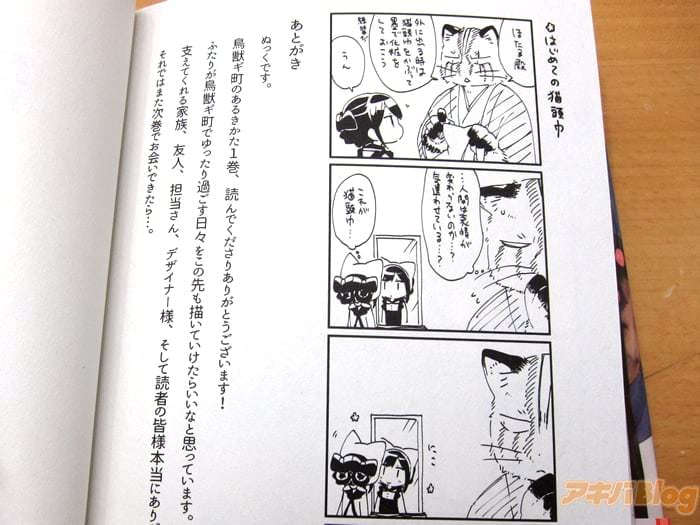 はじめての猫頭巾
ほたる殿
外に出る時は
猫頭巾をかぶって
墨で化粧を
しておこう
練習だ
うん
…人間は表情が
変わらないのか…?
気遣わせている…?
これが
猫頭巾…
にっこ
あとがき
ぬっくです。
鳥獣ギ町のあるきかた1巻、読んでくださりありがとうございます！
ふたりが鳥獣ギ町でゆったり過ごす日々をこの先も描いていけたらいいなと思っています。
支えてくれる家族、友人、担当さん、デザイナー様、そして読者の皆様本当にあり
それではまた次巻でお会いできたら…。
アキバBlog